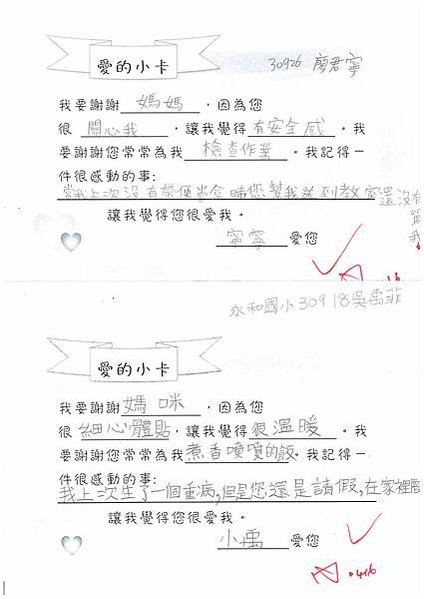 愛的小卡
30926 廖君寧
我要謝謝 媽媽 ,因為您
很 關心我 ,讓我覺得 有安全感 。我
要謝謝您常常為我 檢查作業 。我記得一
件很感動的事:
當我上次沒有帶便當盒時您幫我送到教室還沒有
我
讓我覺得您很愛我。
寧寧 愛您
永和國小30918吳禹菲
愛的小卡
我要謝謝 媽咪 ,因為您
很 細心體貼 ,讓我覺得 很溫暖 。我
要謝謝您常常為我 煮香噴噴的飯 。我記得一
件很感動的事:
我上次生了一個重病,但是您還是請假,在家裡
讓我覺得您很愛我。
小禹 愛您